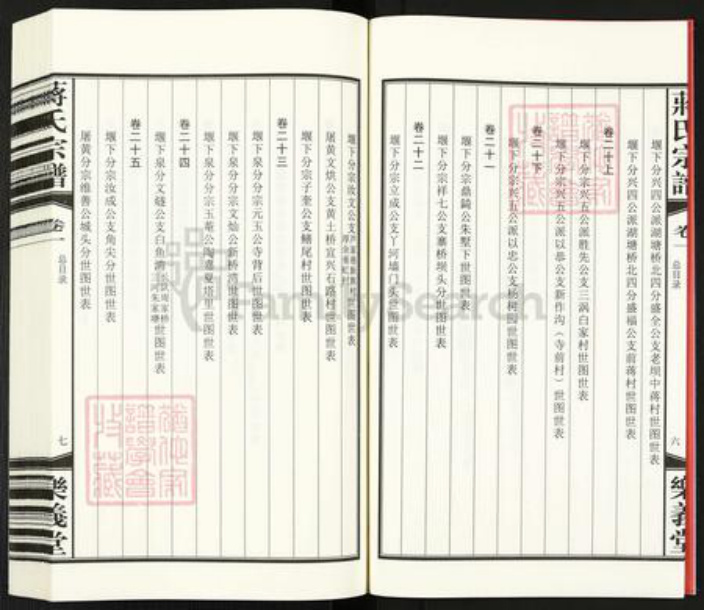 蔣氏宗譜
卷一
总目录
六
樂義堂
堰下分兴四公派湖塘桥北四分盛全公支老坝中蒋村世图世表
堰下分兴四公派湖塘桥北四分盛福公支前蒋村世图世表
卷二十上
堰下分宗兴五公派胜先公支三涡白家村世图世表
堰下分宗兴五公派以恭公支新作沟（寺前村）世图世表
卷二十下
堰下分宗兴五公派以忠公支杨树园世图世表
卷二十一
堰下分宗鼎錡公朱墅下世图世表
堰下分宗祥七公支寨桥坝头分世图世表
卷二十二
堰下分宗立成公支丫河墙门头世图世表
堰下分宗汝文公支
世图世表
屠黄文烘公支黄土桥宜兴石路村世图世表
堰下分宗子奎公支鳝尾村世图世表
卷二十三
堰下泉分分宗元玉公寺背后世图世表
堰下泉分分宗文灿公新桥湾世图世表
堰下泉分分宗玉菴公陶道夏塔里世图世表
卷二十四
堰下泉分文
公支白鱼湾
周家桥
朱家塘
世图世表
卷二十五
堰下分宗汝成公支角尖分世图世表
屠黄分宗维善公城头分世图世表
蔣氏宗譜
卷一
总目录
七
樂義堂
FamilySearch